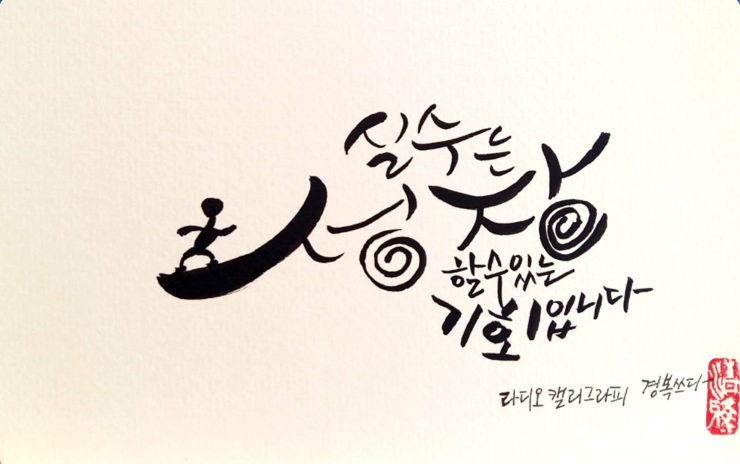 실수는
성장
할수있는
기회입니다
라디오 캘리그라피 경복쓰다